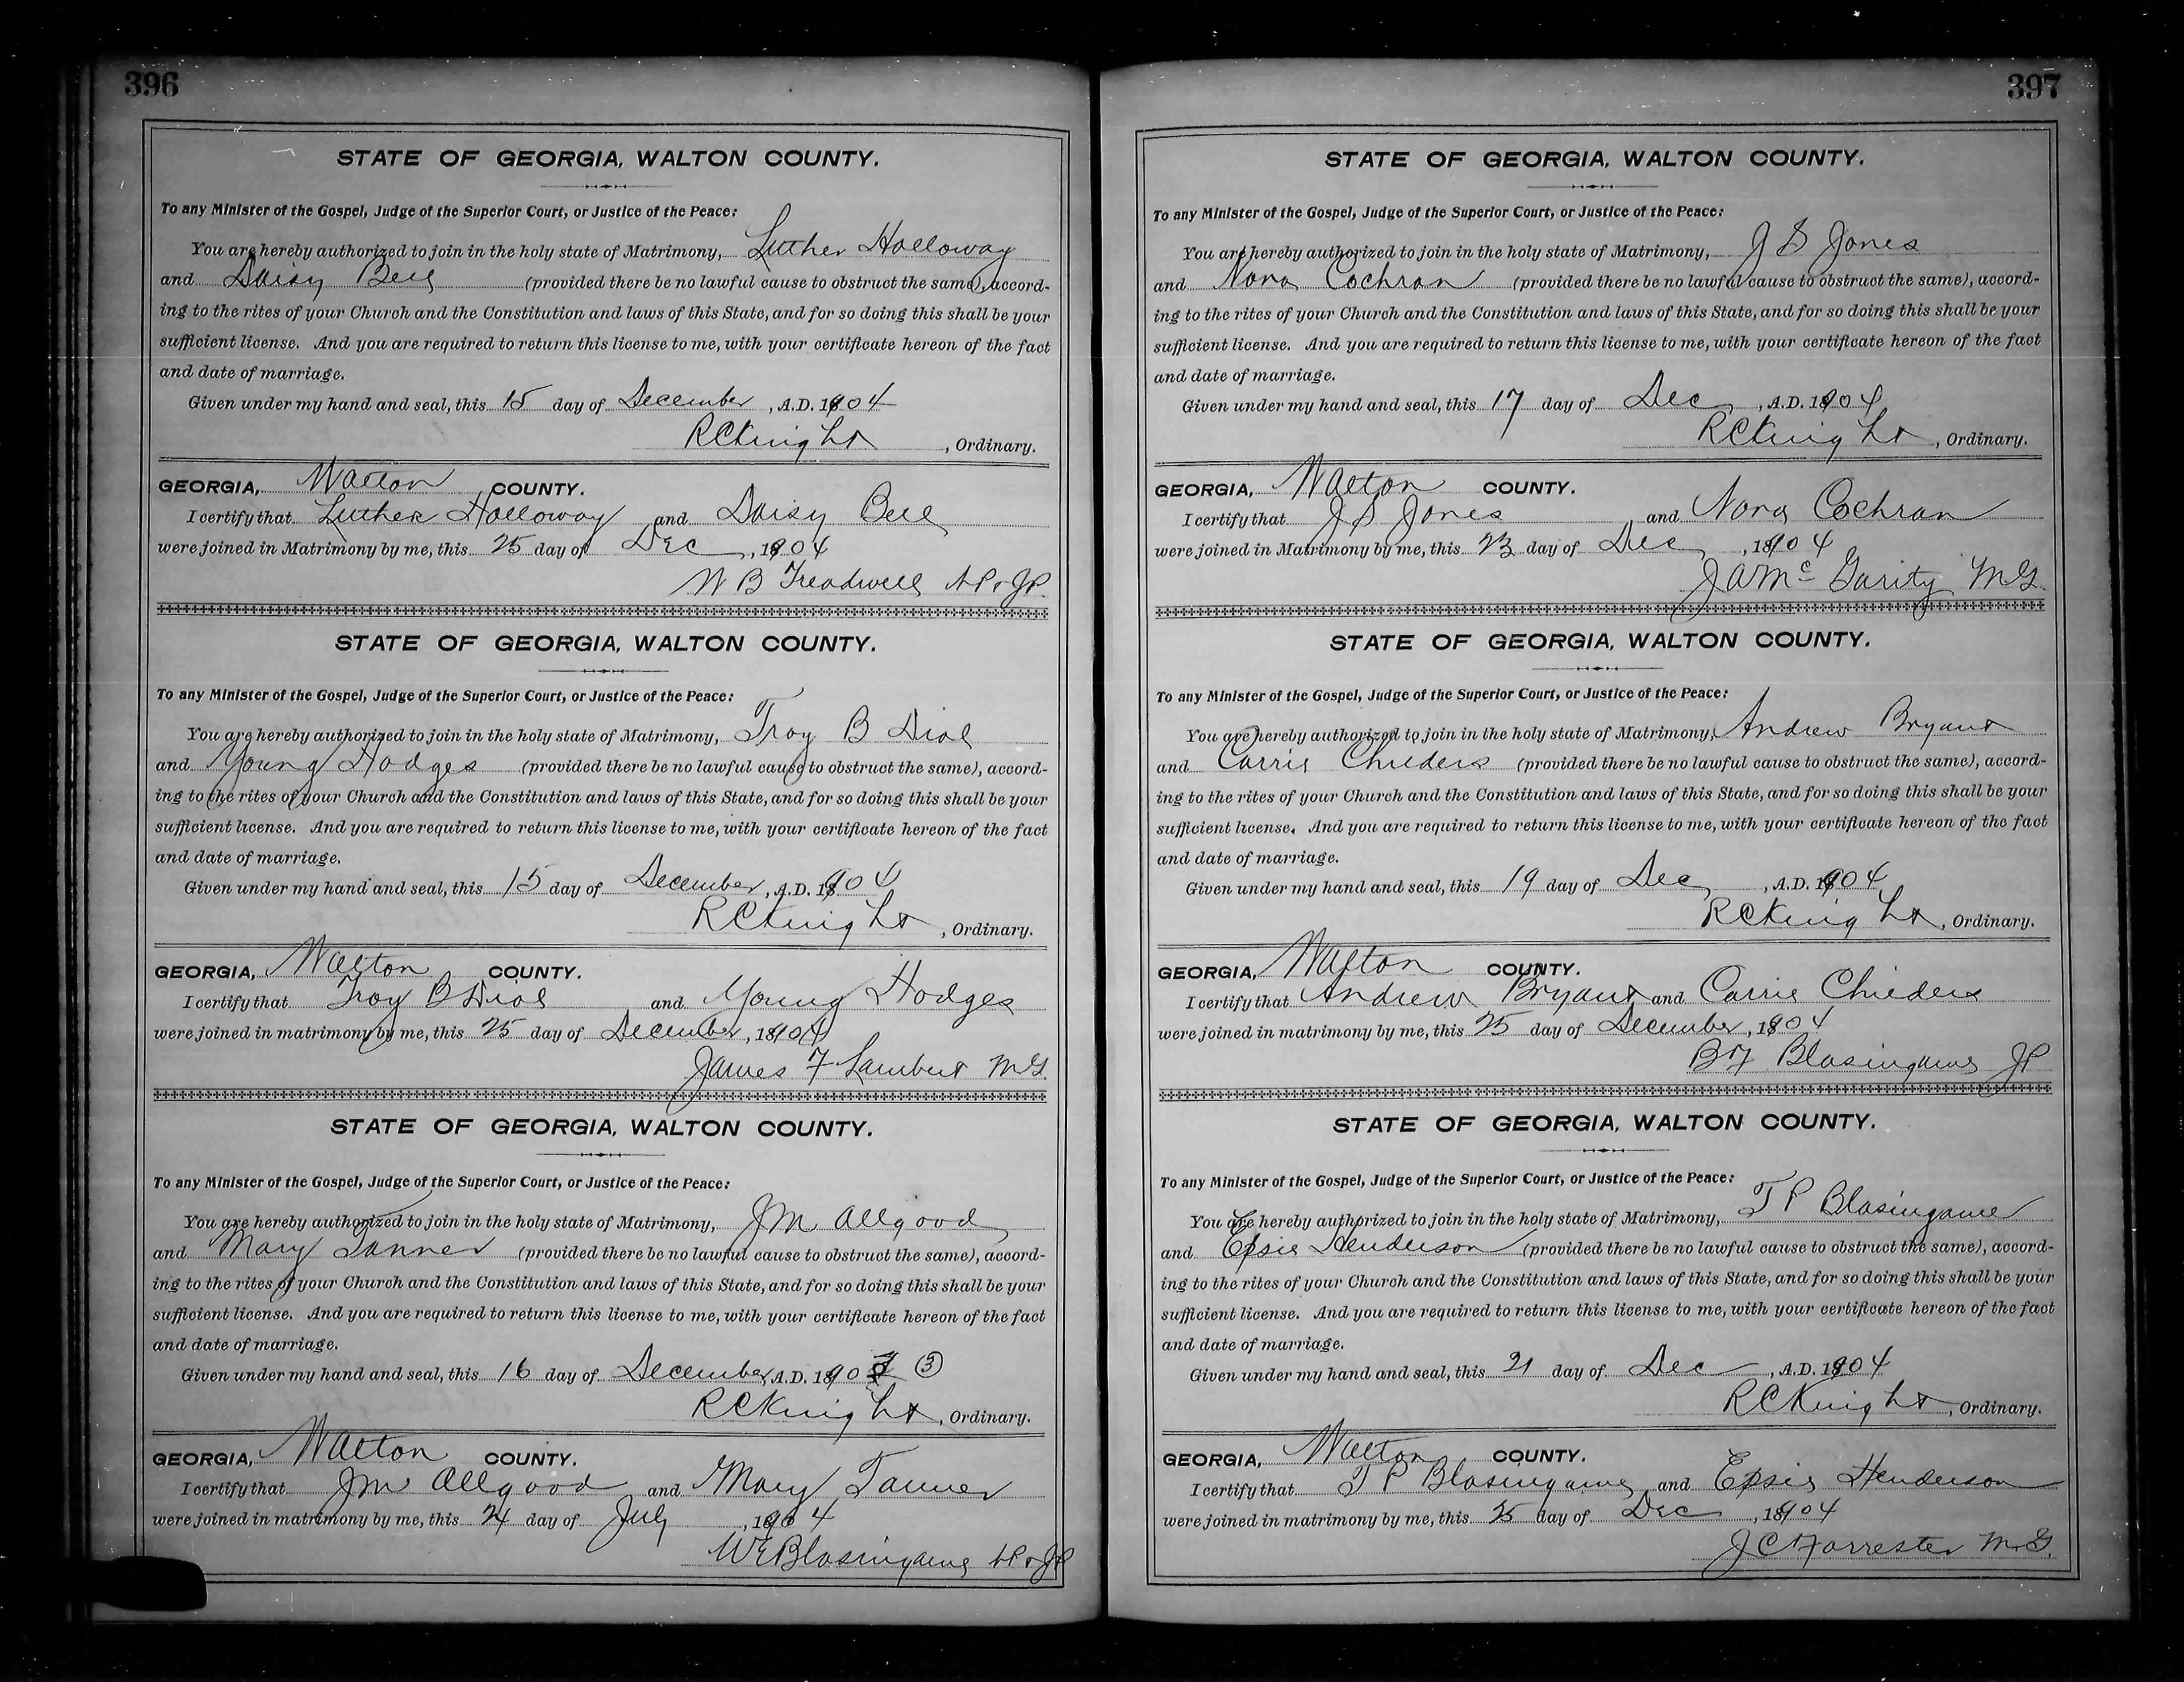 396
STATE OF GEORGIA, WALTON COUNTY.
To any Minister of the Gospel, Judge of the Superior Court, or Justice of the Peace:
You are hereby authorized to join in the holy state of Matrimony, Luther Holloway
and Daisy Bell (provided there be no lawful cause to obstruct the same), accord-
ing to the rites of your Church and the Constitution and laws of this State, and for so doing this shall be your
sufficient license. And you are required to return this license to me, with your certificate hereon of the fact
and date of marriage.
Given under my hand and seal, this 15 day of December, A.D. 1904
R C Knight, Ordinary.
GEORGIA, Walton COUNTY.
I certify that Luther Holloway and Daisy Bell
were joined in Matrimony by me, this 25 day of Dec, 1904
W B Treadwell N.P. & J.P.
STATE OF GEORGIA, WALTON COUNTY.
To any Minister of the Gospel, Judge of the Superior Court, or Justice of the Peace:
You are hereby authorized to join in the holy state of Matrimony, Troy B Dial
and Young Hodges (provided there be no lawful cause to obstruct the same), accord-
ing to the rites of your Church and the Constitution and laws of this State, and for so doing this shall be your
sufficient license. And you are required to return this license to me, with your certificate hereon of the fact
and date of marriage.
Given under my hand and seal, this 15 day of December, A.D. 1904
R C Knight, Ordinary.
GEORGIA, Walton COUNTY.
I certify that Troy B Dial and Young Hodges
were joined in matrimony by me, this 25 day of December, 1904
James F Lambert M.G.
STATE OF GEORGIA, WALTON COUNTY.
To any Minister of the Gospel, Judge of the Superior Court, or Justice of the Peace:
You are hereby authorized to join in the holy state of Matrimony, J M Allgood
and Mary Tanner (provided there be no lawful cause to obstruct the same), accord-
ing to the rites of your Church and the Constitution and laws of this State, and for so doing this shall be your
sufficient license. And you are required to return this license to me, with your certificate hereon of the fact
and date of marriage.
Given under my hand and seal, this 16 day of December, A.D. 1903 (3)
R C Knight, Ordinary.
GEORGIA, Walton COUNTY.
I certify that J M Allgood and Mary Tanner
were joined in matrimony by me, this 24 day of July, 1904
W E Blasingame N.P. & J.P.
397
STATE OF GEORGIA, WALTON COUNTY.
To any Minister of the Gospel, Judge of the Superior Court, or Justice of the Peace:
You are hereby authorized to join in the holy state of Matrimony, J S Jones
and Nora Cochran (provided there be no lawful cause to obstruct the same), accord-
ing to the rites of your Church and the Constitution and laws of this State, and for so doing this shall be your
sufficient license. And you are required to return this license to me, with your certificate hereon of the fact
and date of marriage.
Given under my hand and seal, this 17 day of Dec, A.D. 1904
R C Knight, Ordinary.
GEORGIA, Walton COUNTY.
I certify that J S Jones and Nora Cochran
were joined in Matrimony by me, this 23 day of Dec, 1904
J A McGarity M.G.
STATE OF GEORGIA, WALTON COUNTY.
To any Minister of the Gospel, Judge of the Superior Court, or Justice of the Peace:
You are hereby authorized to join in the holy state of Matrimony, Andrew Bryant
and Carrie Childers (provided there be no lawful cause to obstruct the same), accord-
ing to the rites of your Church and the Constitution and laws of this State, and for so doing this shall be your
sufficient license. And you are required to return this license to me, with your certificate hereon of the fact
and date of marriage.
Given under my hand and seal, this 19 day of Dec, A.D. 1904
R C Knight, Ordinary.
GEORGIA, Walton COUNTY.
I certify that Andrew Bryant and Carrie Childers
were joined in matrimony by me, this 25 day of December, 1904
B F Blasingame JP
STATE OF GEORGIA, WALTON COUNTY.
To any Minister of the Gospel, Judge of the Superior Court, or Justice of the Peace:
You are hereby authorized to join in the holy state of Matrimony, T P Blasingame
and Epsie Henderson (provided there be no lawful cause to obstruct the same), accord-
ing to the rites of your Church and the Constitution and laws of this State, and for so doing this shall be your
sufficient license. And you are required to return this license to me, with your certificate hereon of the fact
and date of marriage.
Given under my hand and seal, this 21 day of Dec, A.D. 1904
R C Knight, Ordinary.
GEORGIA, Walton COUNTY.
I certify that T P Blasingame and Epsie Henderson
were joined in matrimony by me, this 25 day of Dec, 1904
J C Forrester M.G.